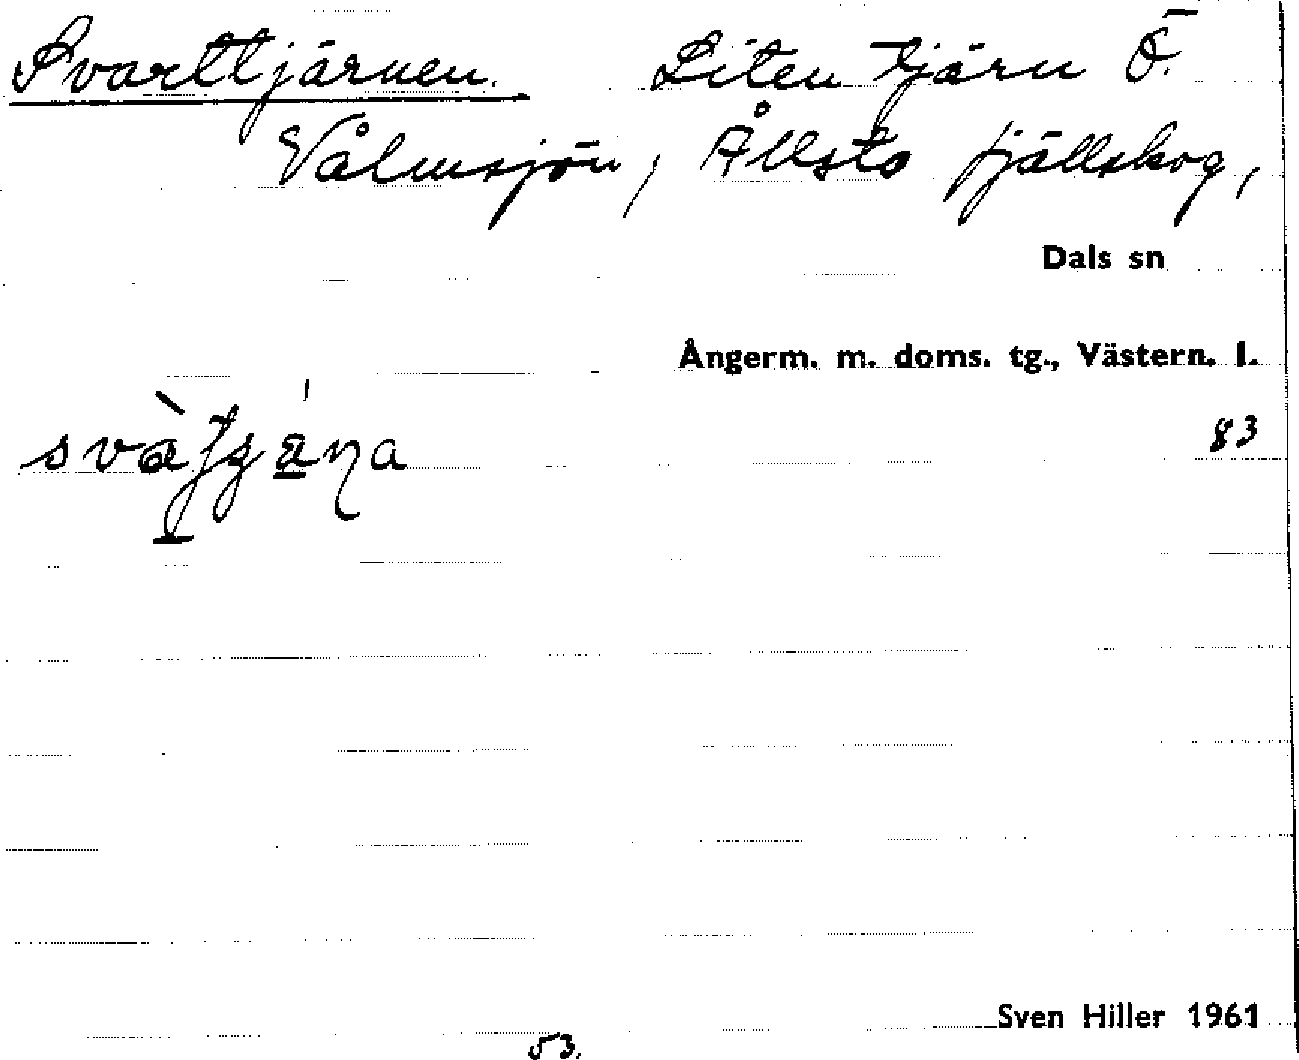 Svarttjärnen. Liten tjärn Ö.
Vålmsjön, Ållsta fjällskog,
Dals sn
Ångerm. m. doms. tg., Västern. l.
83
Sven Hiller 1961
53.